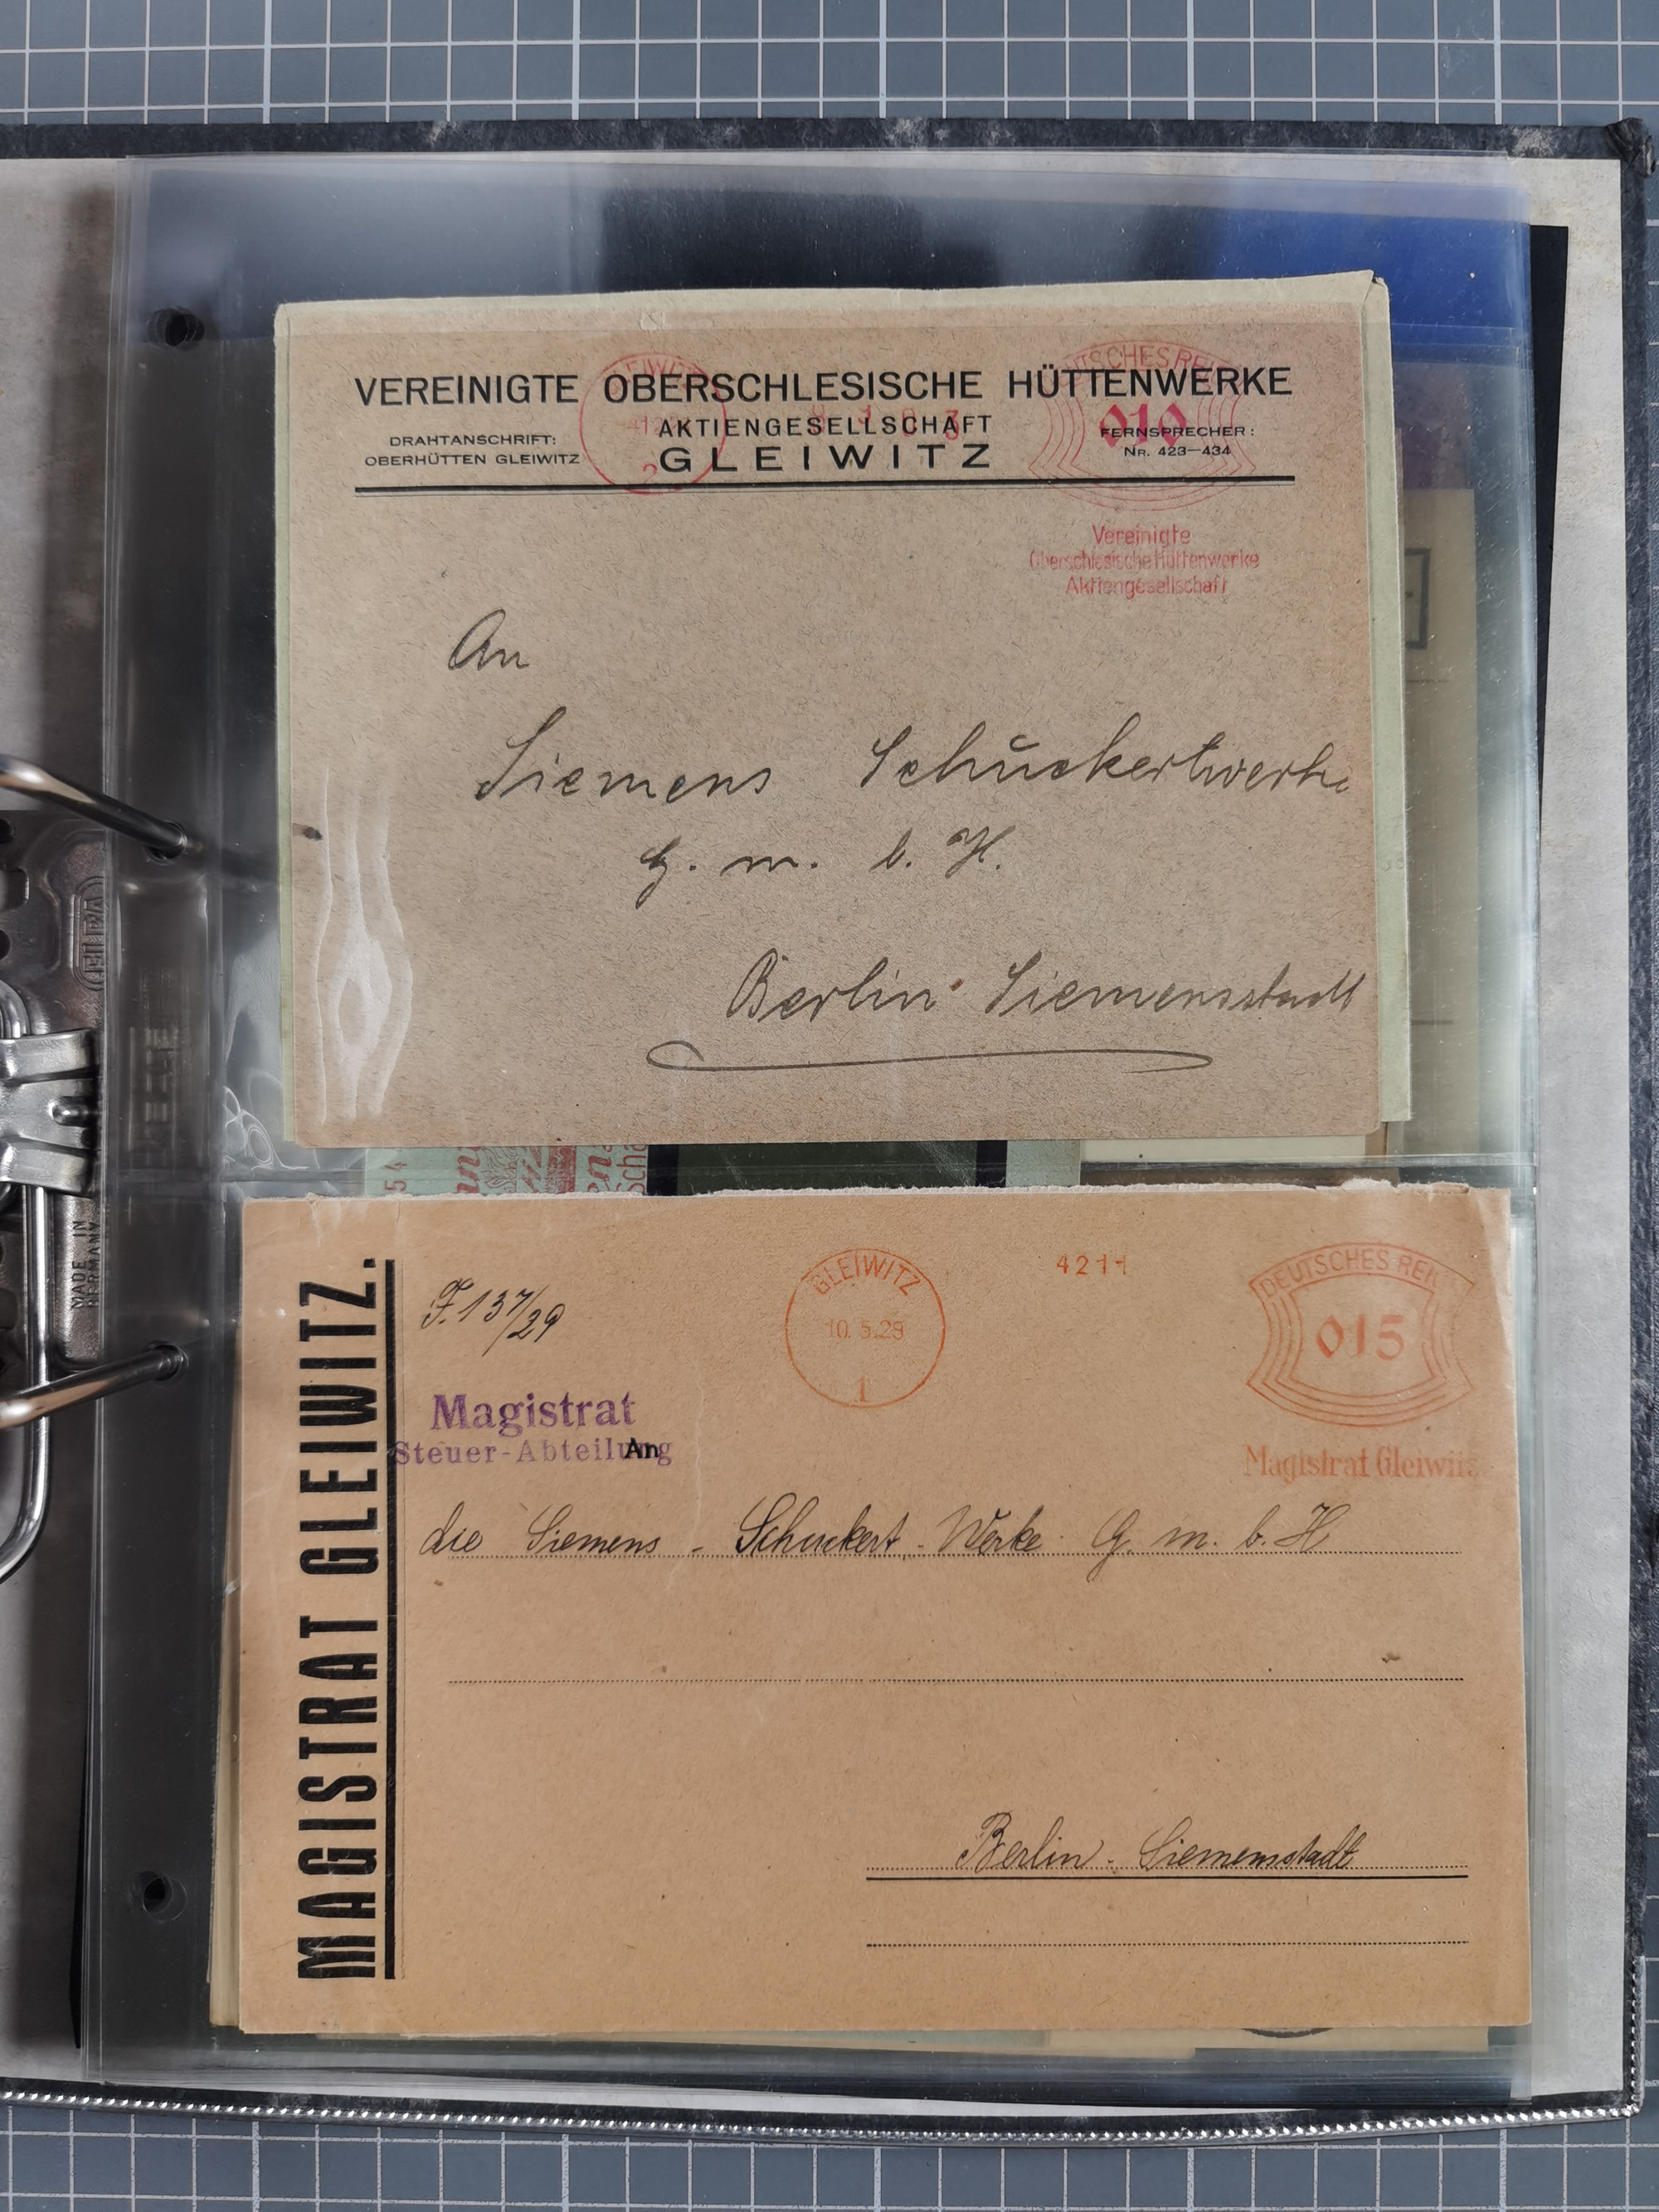 VEREINIGTE OBERSCHLESISCHE HÜTTENWERKE
AKTIENGESELLSCHAFT
GLEIWITZ
DRAHTANSCHRIFT:
OBERHÜTTEN GLEIWITZ
FERNSPRECHER:
NR. 423—434
GLEIWITZ
2
010
Vereinigte
Oberschlesische Hüttenwerke
Aktiengesellschaft
An
Siemens Schuckertwerke
G. m. b. H.
Berlin Siemensstadt
MADE IN GERMANY
54
MAGISTRAT GLEIWITZ.
F. 137/29
Magistrat
Steuer-Abteilung
GLEIWITZ
10.5.29
1
4211
DEUTSCHES REICH
015
Magistrat Gleiwitz
An
die Siemens - Schuckert - Werke G. m. b. H
Berlin - Siemensstadt